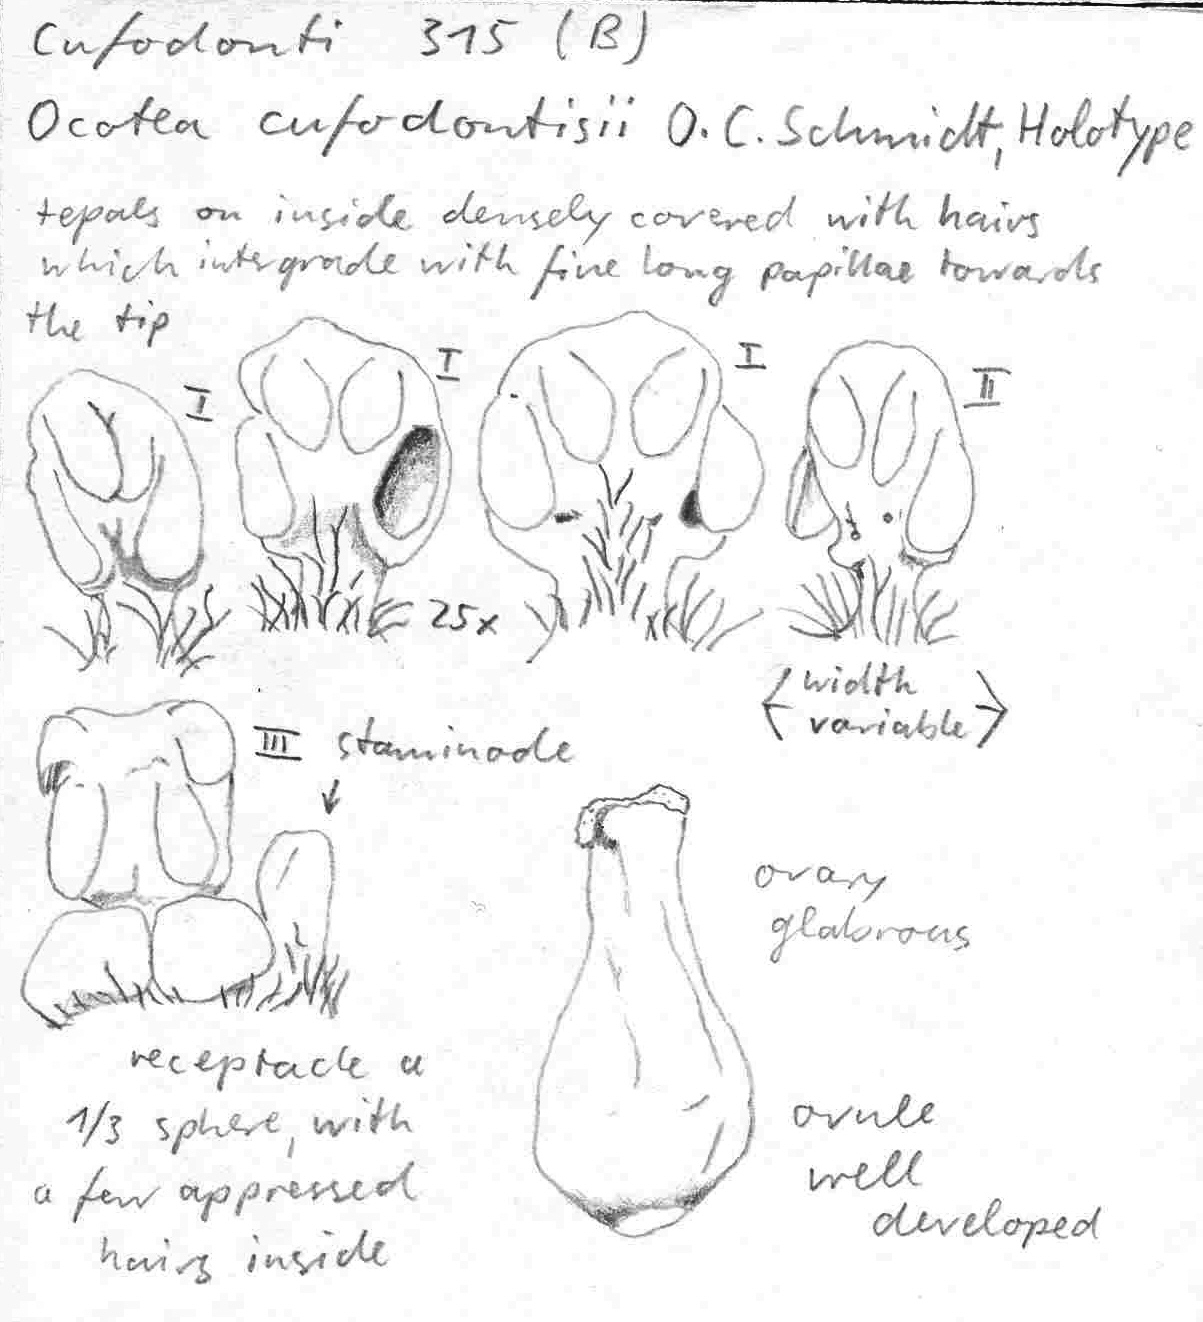 Cufodonti 315 (B)
Ocotea cufodontisii O.C. Schmidt, Holotype
tepals on inside densely covered with hairs
which intergrade with fine long papillae towards
the tip
I
I
I
II
25x
width
variable
III staminode
ovary
glabrous
receptacle a
1/3 sphere, with
a few appressed
hairs inside
ovule
well
developed